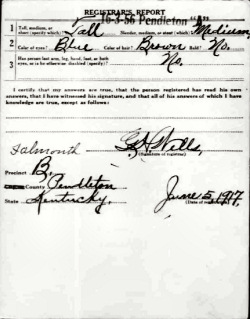 REGISTRAR'S REPORT
16-3-56 Pendleton "A"
1 Tall, medium, or short (specify which)? Tall Slender, medium, or stout (which)? Medium
2 Color of eyes? Blue Color of hair? Brown Bald? No.
3 Has person lost arm, leg, hand, foot, or both
eyes, or is he otherwise disabled (specify)? No.
I certify that my answers are true, that the person registered has read his own
answers, that I have witnessed his signature, and that all of his answers of which I have
knowledge are true, except as follows:
Wills,
Falmouth
(Signature of registrar)
Precinct B.
County Pendleton
State Kentucky.
June 5, 1917
(Date of